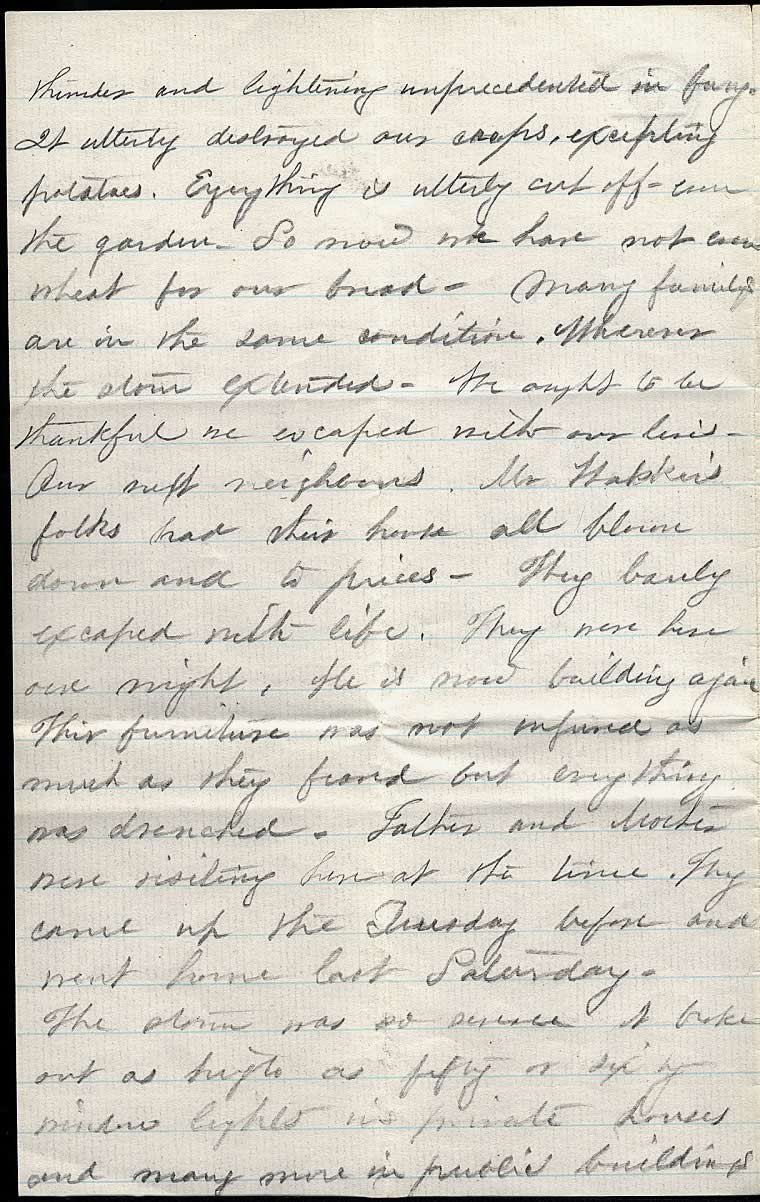 thunder and lightening unprecedented in fury.
It utterly destroyed our crops, excepting
potatoes. Everything is utterly cut off - even
the garden - So now we have not even
wheat for our bread - Many family's
are in the same condition. Wherever
the storm extended - We ought to be
thankful we escaped with our lives -
Our next neighbours. Mr
folks had their house all blown
down and to pieces - They barely
excaped with life. They were here
one night. He is now building again
Their furniture was not injured as
much as they feared but everything
was drenched. Father and Mother
were visiting here at the time. They
came up the Tuesday before and
went home last Saturday.
The storm was so severe it broke
out as high as fifty or sixty
window lights in private houses
and many more in public buildings